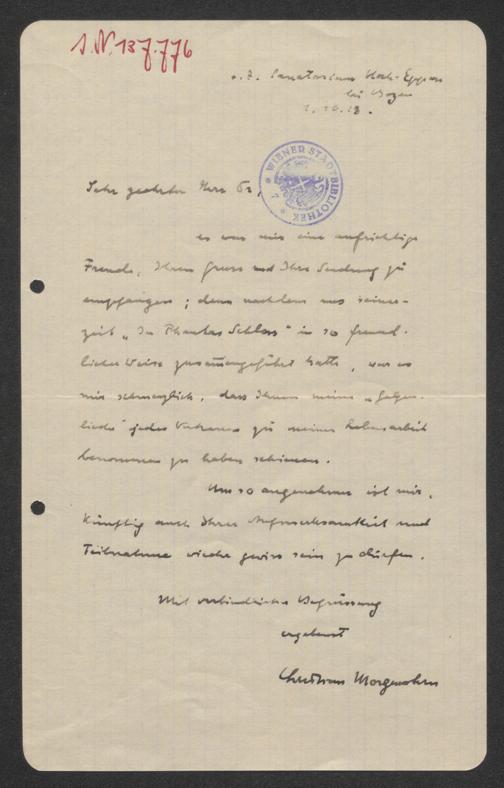 I.N. 137.776
z. Z. Sanatorium Hoch-Eppan
bei Bozen
2. 10. 13.
WIENER STADTBIBLIOTHEK
Sehr geehrter Herr Dr.,
es war mir eine aufrichtige
Freude, Ihren Gruss und Ihre Sendung zu
empfangen; denn nachdem uns seiner-
zeit „In Phantas Schloss“ in so freund-
licher Weise zusammengeführt hatte, war es
mir schmerzlich, dass Ihnen meine „Galgen-
lieder“ jedes Vertrauen zu meiner Lebensarbeit
benommen zu haben schienen.
Um so angenehmer ist mir,
künftig auch Ihrer Aufmerksamkeit und
Teilnahme wieder gewiss sein zu dürfen.
Mit verbindlicher Begrüssung
ergebenst
Christian Morgenstern